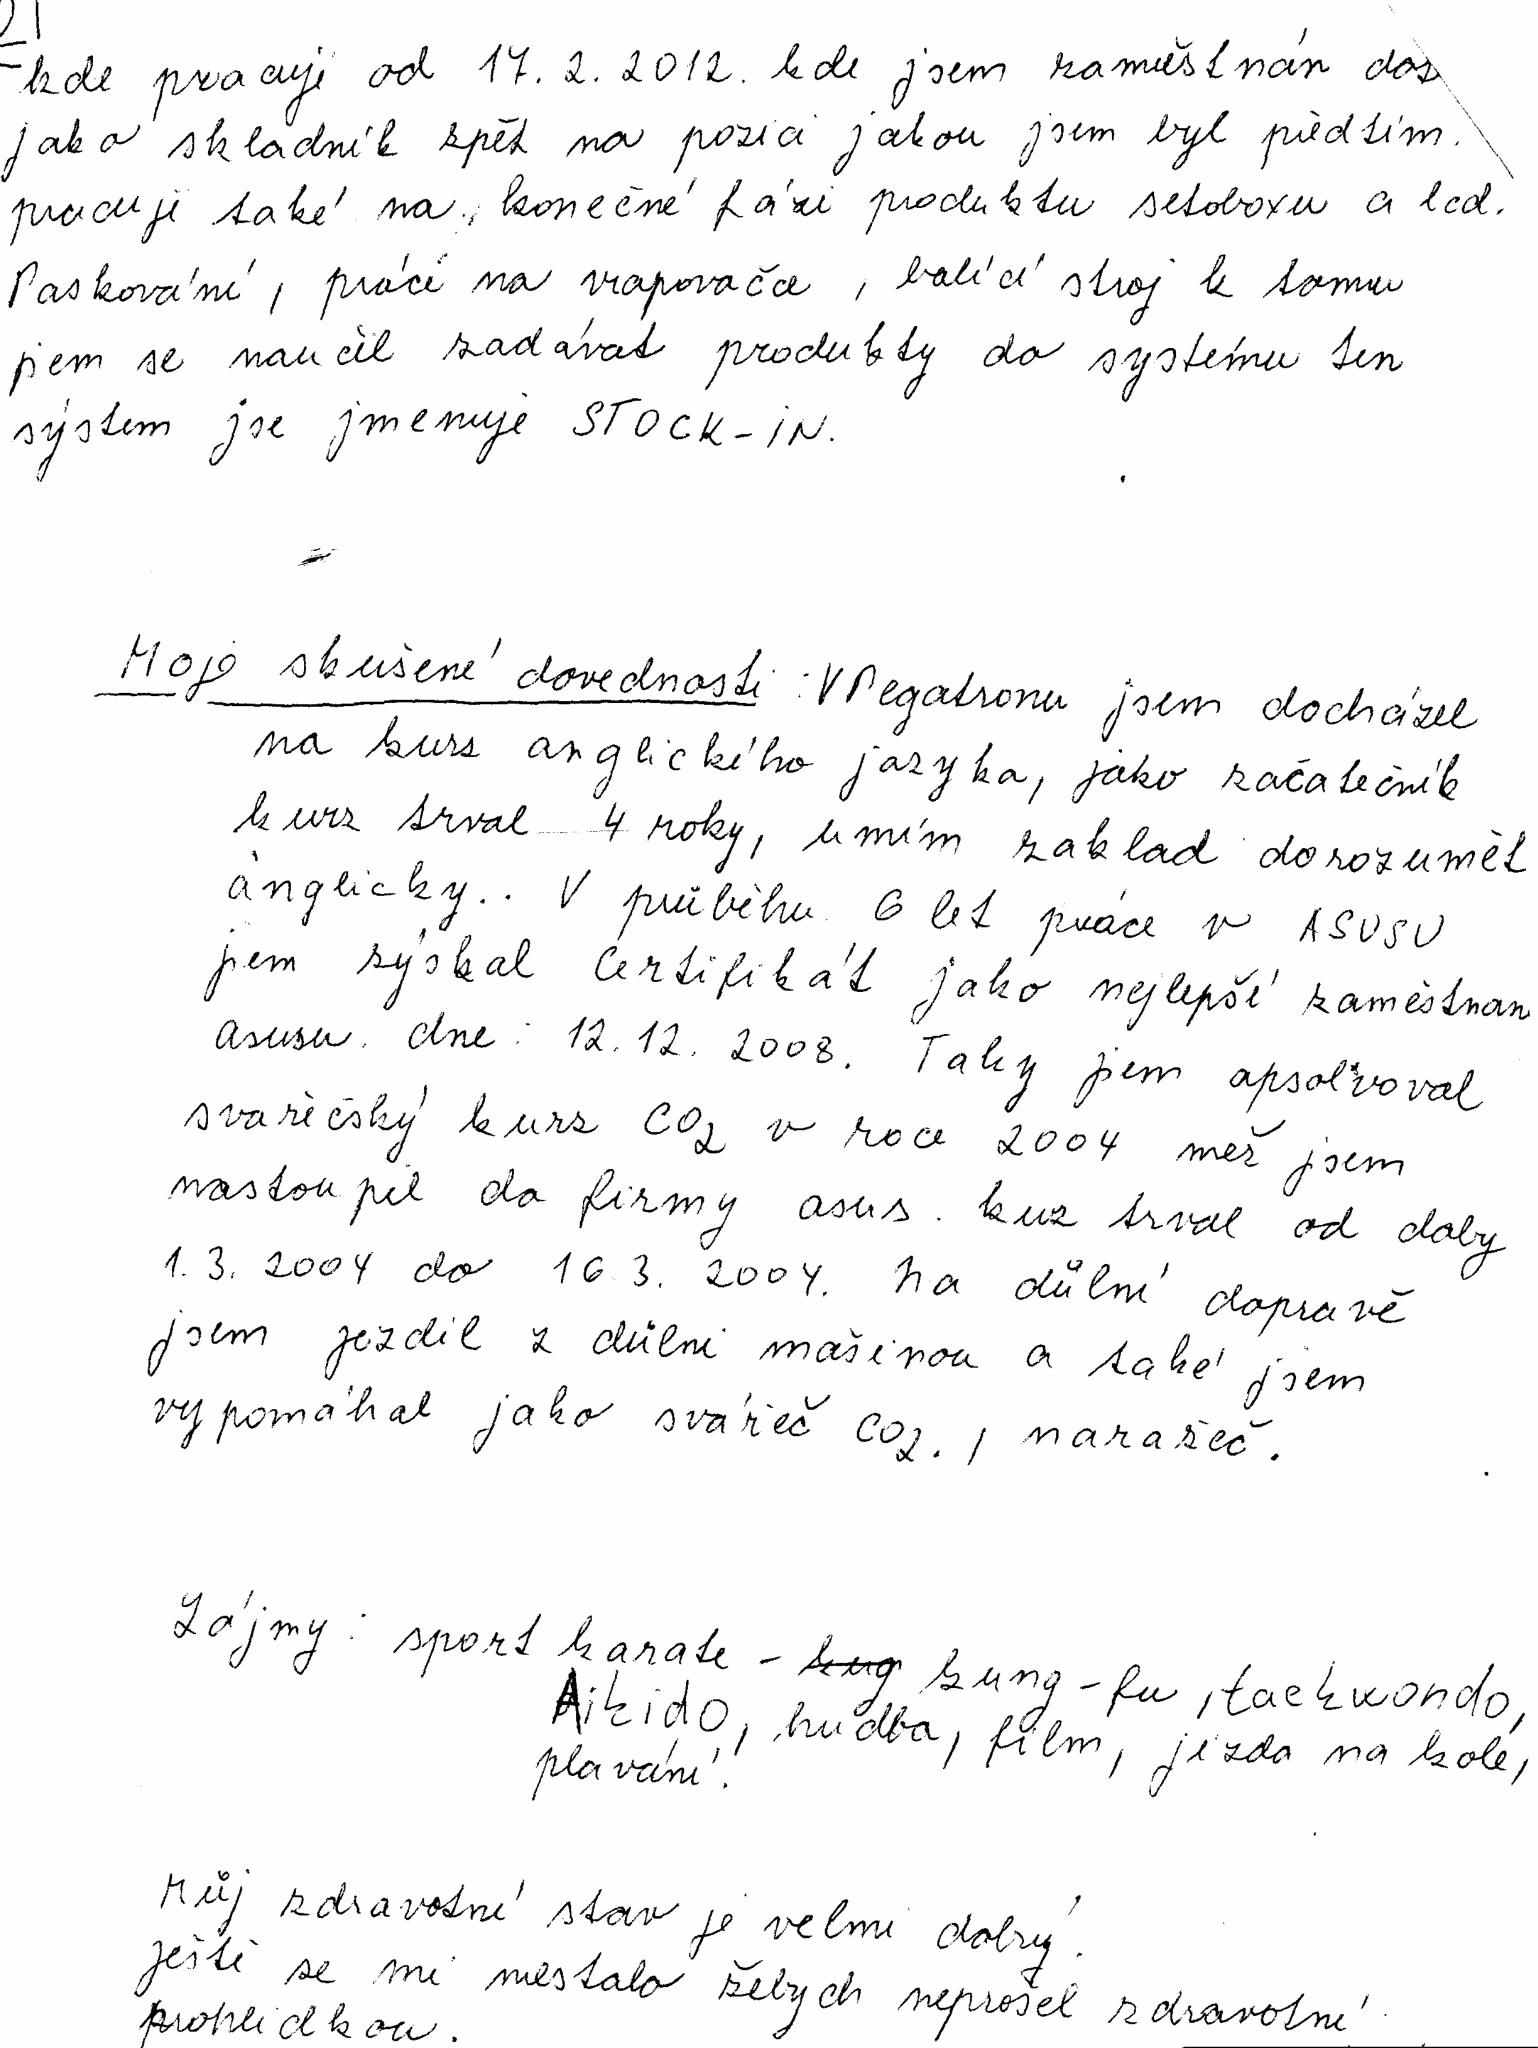 21
kde pracuji od 17.2.2012. kde jsem zaměstnán dos
jako skladník zpět na pozici jakou jsem byl předtím.
pracuji také na konečné fázi produktu setoboxu a lcd.
Paskování, práci na vrapovačce, balící stroj k tomu
jsem se naučil zadávat produkty do systému ten
sýstem jse jmenuje STOCK-iN.
Moje skušené dovednosti : V Pegatronu jsem docházel
na kurz anglického jazyka, jako začátečník
kurz trval 4 roky, umím zaklad dorozumět
anglicky.. V průběhu 6 let práce v ASUSU
jsem zýskal Certifikát jako nejlepší zaměstnan
asusu. dne: 12.12.2008. Taky jsem apsolvoval
svařečský kurz CO2 v roce 2004 než jsem
nastoupil do firmy asus. kuz trval od doby
1.3.2004 do 16 3. 2004. Na důlní dopravě
jsem jezdil z důlni mašinou a také jsem
vypomáhal jako svářeč CO2., narážeč.
Zájmy: sport karate - kug kung-fu, taekwondo,
Aikido, hudba, film, jízda na kole,
plavání.
Můj zdravotní stav je velmi dobrý.
ještě se mi nestalo žebych neprošel zdravotní
prohlidkou.